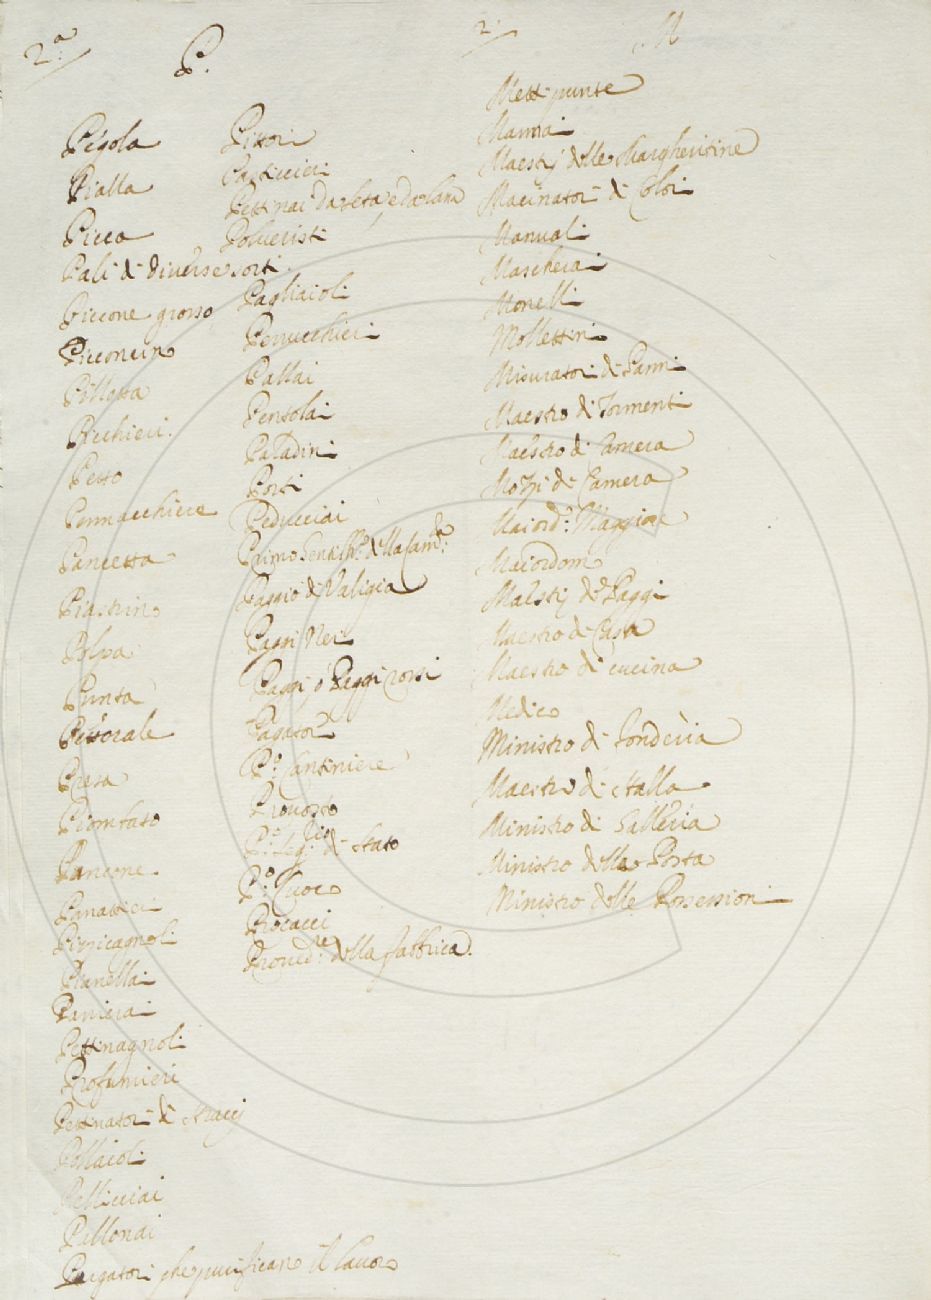 2.a
P.
Pégola
Pialla
Picca
Pali di diverse sorti
Piccone grosso
Picconcino
Pillotta
Picchieri.
Petto
Pennacchiere
Pancetta
Piastrino
Polpa
Punta
Pettorale
Presa
Piombato
Pancone
Panattieri
Pizzicagnoli
Pianellai
Panierai
Pettinagnoli
Profumieri
Pettinatori di stracci
Pollaioli
Pellicciai
Pillonai
Purgatori che purificano il lavoro
Pittori
Pasticcieri
Pettinai da seta, e da lana
Polveristi
Pagliaioli
Perucchieri
Pallai
Pentolai
Paladini
Porti
Peducciai
Primo Gentilh.o della Cam.ra
Paggio di Valigia
Paggi Neri
Paggi, o Paggi rossi
Pagatori
P.o Cantiniere
Provosto
P.o Seg.rio di Stato
P.o Cuoco
Procacci
Proved.re della fabbrica.
2.
M
Mettipunte
Mannai
Maestri delle Margheritine
Macinatori di Colori
Manuali
Mascherai
Monelli
Mollettini
Misuratori di Panni
Maestro di Tormenti
Maestro di Camera
Mozzi di Camera
Maiord.o Maggiore
Maiordomo
Maestri de Paggi
Maestro di Casa
Maestro di cucina
Medico
Ministro di Fonderia
Maestro di stalla
Ministro di Galleria
Ministro della Posta
Ministro delle Possessioni